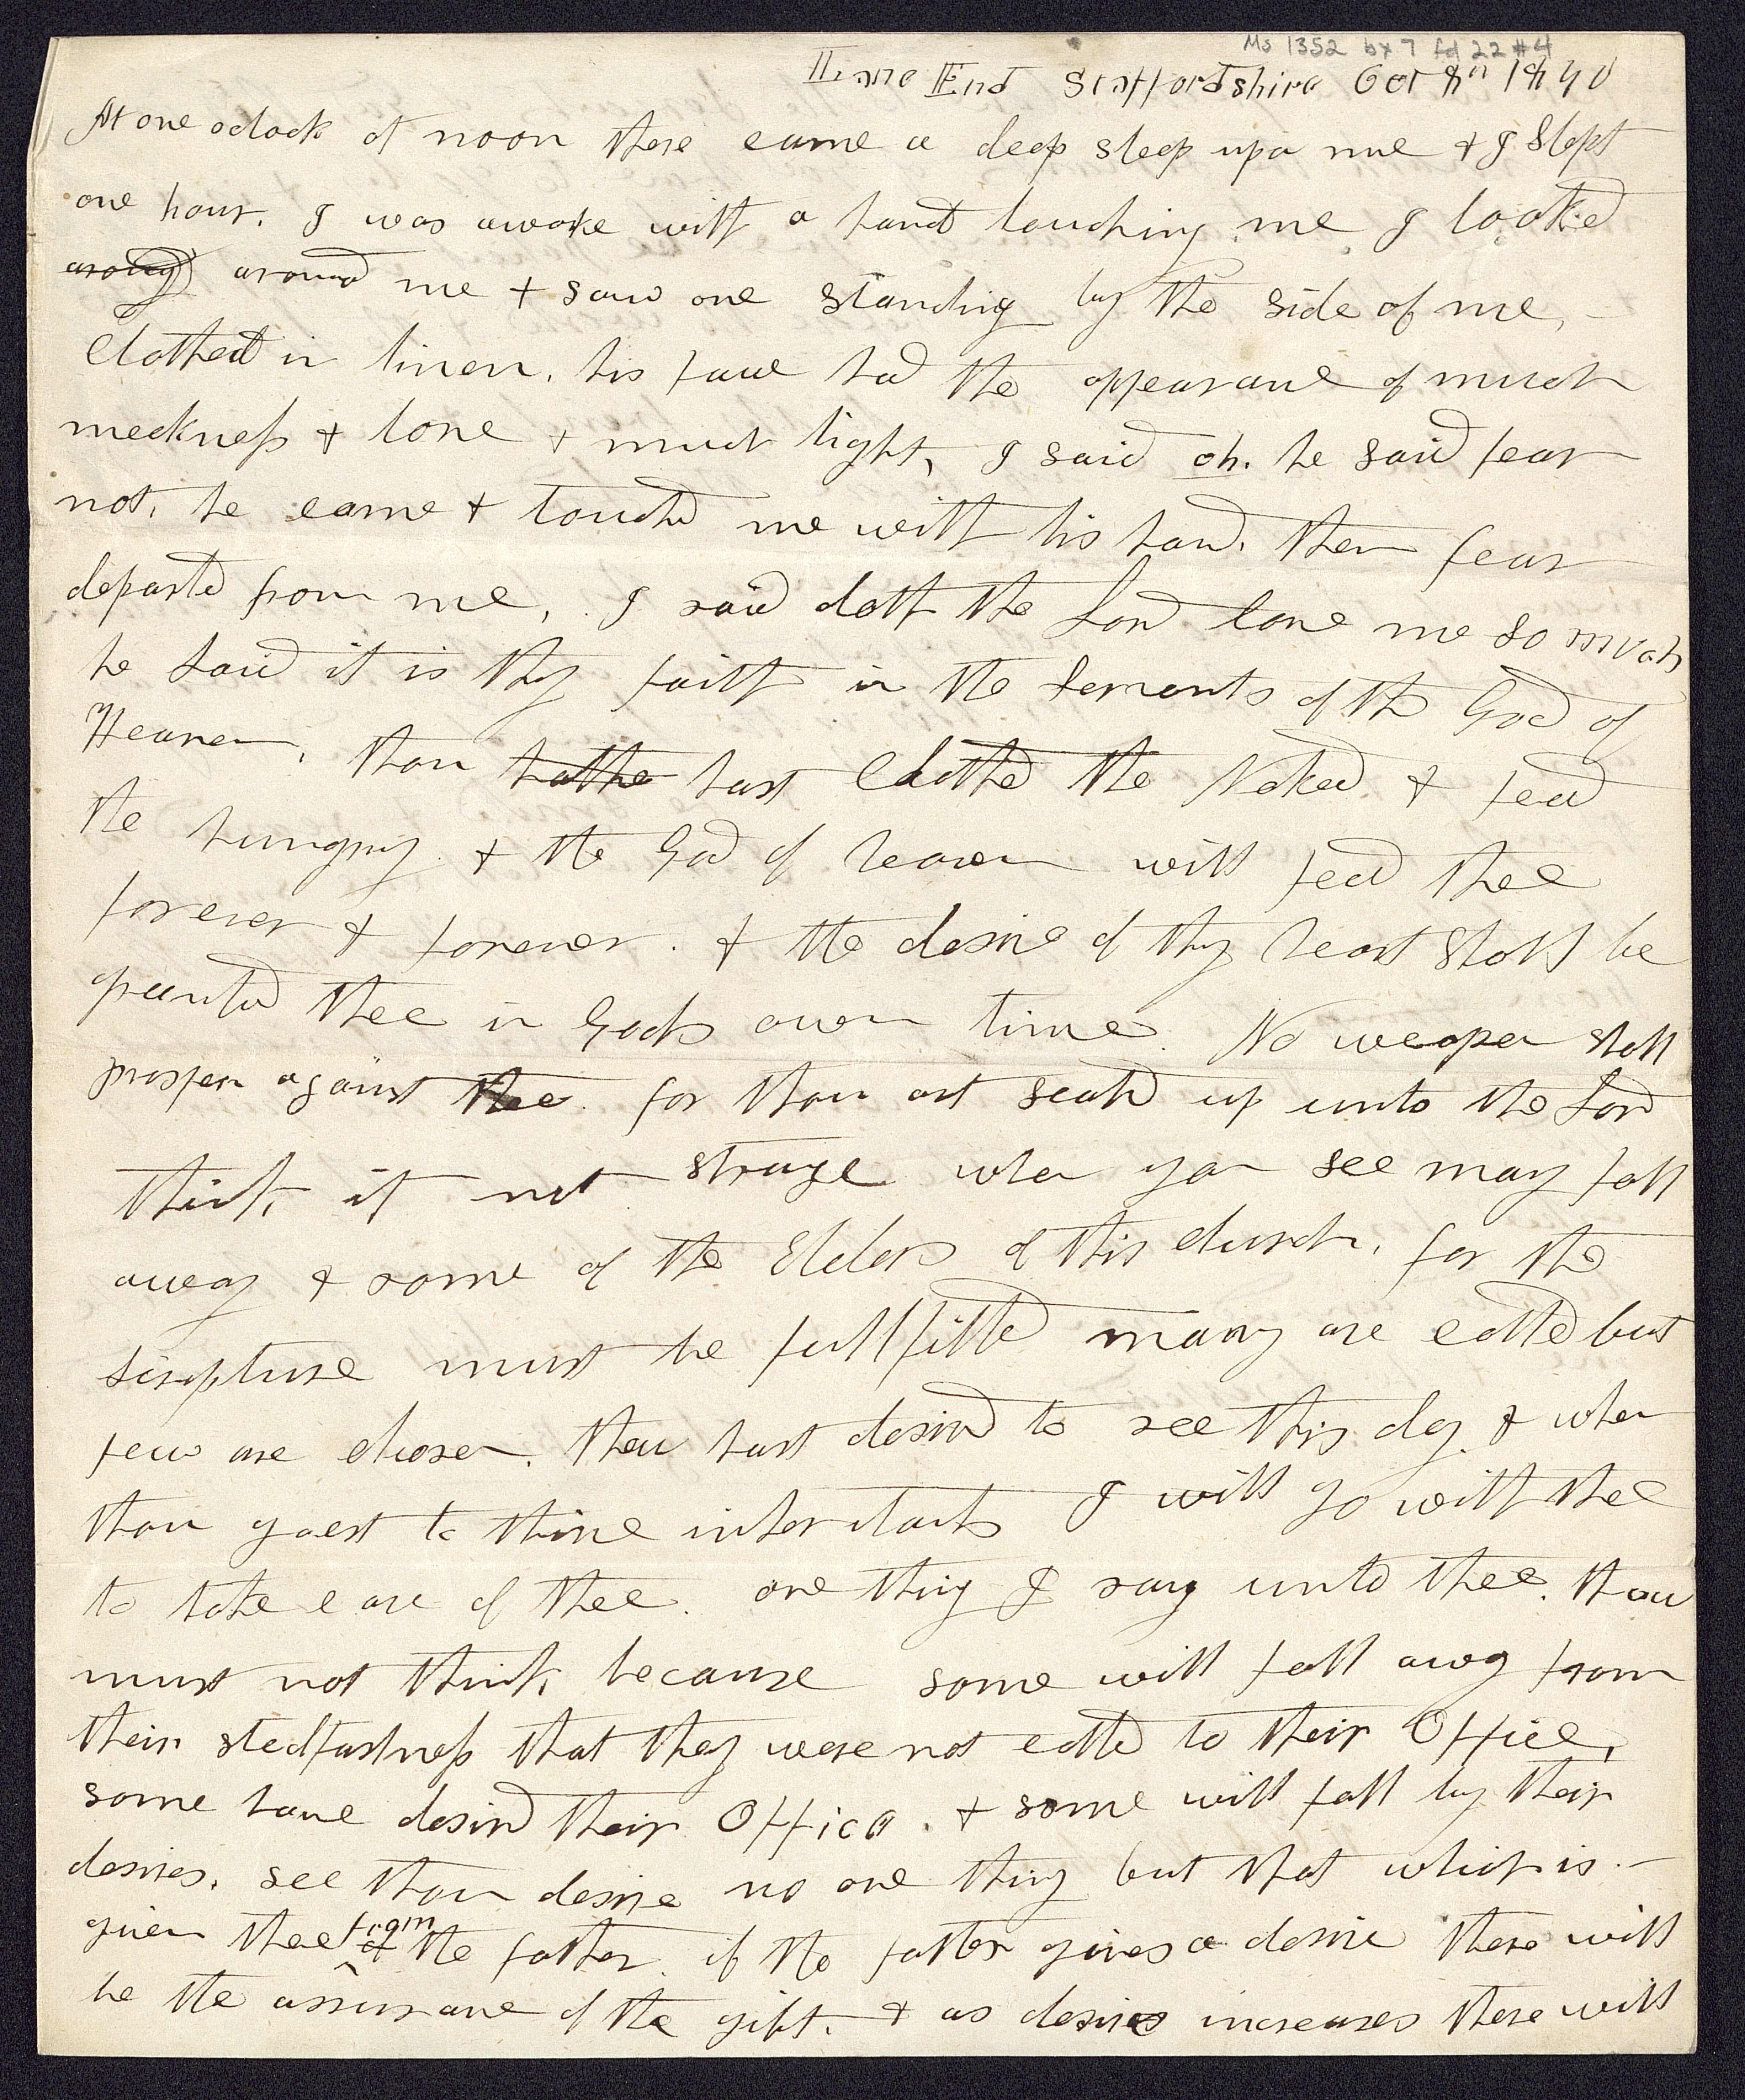 Ms 1352 bx 7 fd 22 #4
Lane End Staffordshire Oct 8th 1840
At one oclock at noon there came a deep sleep upon me & I Slept
one hour. I was awoke with a hand touching me I looked
around me & saw one standing by the side of me, -
Clothed in linen. his face had the appearance of much
meekness & love & much light, I said oh. he said fear
not. he came & touched me with his hand. then fear
departed from me, I said doth the Lord love me so much
he said it is thy faith in the servants of the God of
Heaven, thou hathe hast Clothed the Naked & fead
the hungry. & the God of heaven will fead thee
forever & forever. & the desire of thy heart shall be
granted thee in Gods own time. No weapen shall
prosper against thee. for thou art seald up unto the Lord
think it not strange when you see many fall
away & some of the Elders of this church, for the
scripture must be fullfilled many are called but
few are chosen. thou hast desired to see this day. & when
thou goest to thine I will go with thee
to take care of thee. one thing I say unto thee. thou
must not think because some will fall away from
their stedfastness that they were not called to their Office,
some have desird their Office. & some will fall by their
desires. see thou desire no one thing but that which is -
given thee from of the father. if the father gives a desire there will
be the assurance of the gift. & as desires increases there will